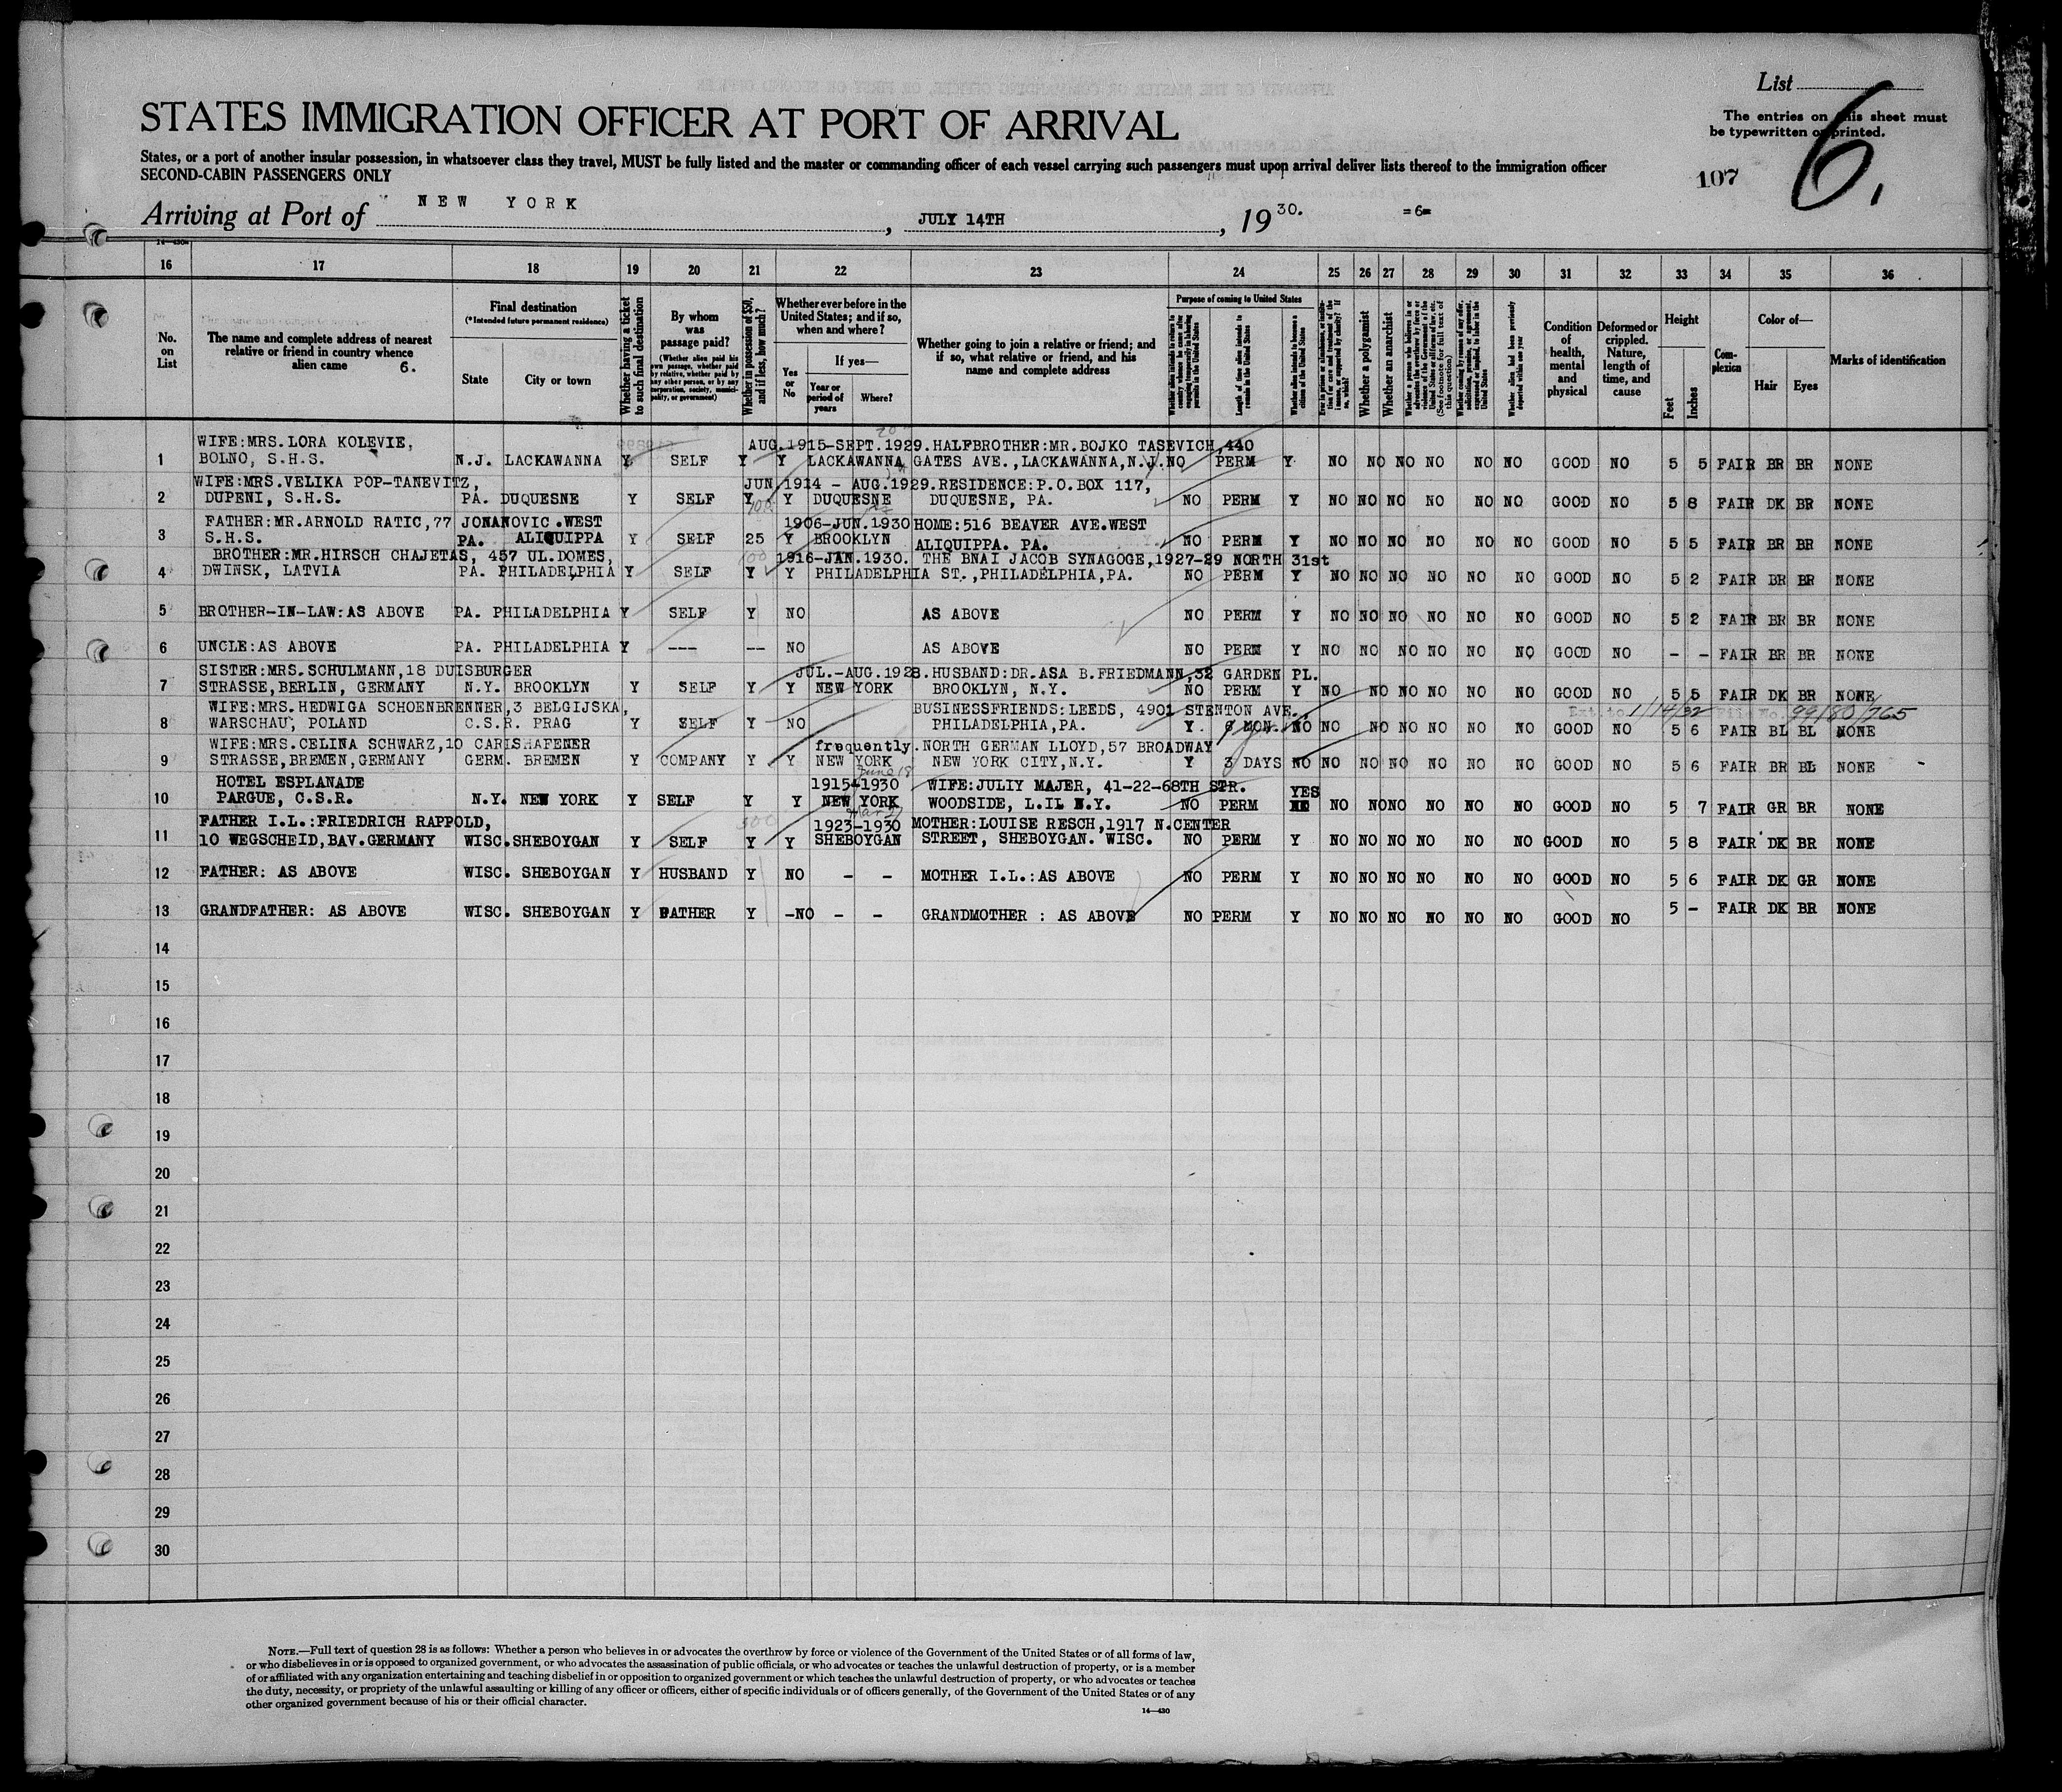 List
STATES IMMIGRATION OFFICER AT PORT OF ARRIVAL
The entries on this sheet must
be typewritten or printed.
6.
States, or a port of another insular possession, in whatsoever class they travel, MUST be fully listed and the master or commanding officer of each vessel carrying such passengers must upon arrival deliver lists thereof to the immigration officer
SECOND-CABIN PASSENGERS ONLY
107
Arriving at Port of NEW YORK, JULY 14TH, 1930. =6=
16 17 18 19 20 21 22 23 24 25 26 27 28 29 30 31 32 33 34 35 36
No. on List
The name and complete address of nearest relative or friend in country whence alien came 6.
Final destination
(*Intended future permanent residence)
State
City or town
Whether having a ticket to such final destination
By whom was passage paid?
(Whether alien paid his own passage, whether paid by relative, whether paid by any other person, or by any corporation, society, municipality, or government)
Whether in possession of $50, and if less, how much?
Whether ever before in the United States; and if so, when and where?
Yes or No
If yes—
Year or period of years
Where?
Whether going to join a relative or friend; and if so, what relative or friend, and his name and complete address
Purpose of coming to United States
Length of time alien intends to remain in the United States
Whether alien intends to become a citizen of the United States
Whether a polygamist
Whether an anarchist
(See footnote for full text of this question)
Whether alien had been previously deported within one year
Condition of health, mental and physical
Deformed or crippled. Nature, length of time, and cause
Height
Feet
Inches
Complexion
Color of—
Hair
Eyes
Marks of identification
WIFE:MRS.LORA KOLEVIE, AUG.1915-SEPT.1929.HALFBROTHER:MR.BOJKO TASEVICH,440
1 BOLNO, S.H.S. N.J. LACKAWANNA Y SELF Y Y LACKAWANNA GATES AVE.,LACKAWANNA,N.J. NO PERM Y NO NO NO NO NO NO GOOD NO 5 5 FAIR BR BR NONE
WIFE:MRS.VELIKA POP-TANEVITZ, JUN.1914 - AUG.1929.RESIDENCE:P.O.BOX 117,
2 DUPENI, S.H.S. PA. DUQUESNE Y SELF Y Y DUQUESNE DUQUESNE, PA. NO PERM Y NO NO NO NO NO NO GOOD NO 5 8 FAIR DK BR NONE
FATHER:MR.ARNOLD RATIC,77 JONANOVIC .WEST 1906-JUN.1930 HOME:516 BEAVER AVE.WEST
3 S.H.S. PA. ALIQUIPPA Y SELF 25 Y BROOKLYN ALIQUIPPA. PA. NO PERM Y NO NO NO NO NO NO GOOD NO 5 5 FAIR BR BR NONE
BROTHER:MR.HIRSCH CHAJETAS, 457 UL.DOMES, 1916-JAN.1930. THE BNAI JACOB SYNAGOGE,1927-29 NORTH 31st
4 DWINSK, LATVIA PA. PHILADELPHIA Y SELF Y Y PHILADELPHIA ST.,PHILADELPHIA,PA. NO PERM Y NO NO NO NO NO NO GOOD NO 5 2 FAIR BR BR NONE
5 BROTHER-IN-LAW:AS ABOVE PA. PHILADELPHIA Y SELF Y NO AS ABOVE NO PERM Y NO NO NO NO NO NO GOOD NO 5 2 FAIR BR BR NONE
6 UNCLE:AS ABOVE PA. PHILADELPHIA Y --- -- NO AS ABOVE NO PERM Y NO NO NO NO NO NO GOOD NO - - FAIR BR BR NONE
SISTER:MRS.SCHULMANN,18 DUISBURGER JUL.-AUG.1928.HUSBAND:DR.ASA B.FRIEDMANN,32 GARDEN PL.
7 STRASSE,BERLIN, GERMANY N.Y. BROOKLYN Y SELF Y Y NEW YORK BROOKLYN, N.Y. NO PERM Y NO NO NO NO NO NO GOOD NO 5 5 FAIR DK BR NONE
WIFE:MRS.HEDWIGA SCHOENBRENNER,3 BELGIJSKA, BUSINESSFRIENDS:LEEDS, 4901 STENTON AVE. Ext. to 1/14/32 File No. 99/80/765
8 WARSCHAU, POLAND C.S.R. PRAG Y SELF Y NO PHILADELPHIA,PA. Y. 6 MON. NO NO NO NO NO NO NO GOOD NO 5 6 FAIR BL BL NONE
WIFE:MRS.CELINA SCHWARZ,10 CARISHAFENER frequently.NORTH GERMAN LLOYD,57 BROADWAY
9 STRASSE,BREMEN,GERMANY GERM. BREMEN Y COMPANY Y Y NEW YORK NEW YORK CITY,N.Y. Y 3 DAYS NO NO NO NO NO NO NO GOOD NO 5 6 FAIR BR BL NONE
HOTEL ESPLANADE June 18 1915-1930 WIFE:JULIY MAJER, 41-22-68TH STR. YES
10 PARGUE, C.S.R. N.Y. NEW YORK Y SELF Y Y NEW YORK WOODSIDE, L.IL N.Y. NO PERM NO NO NO NO NO NO GOOD NO 5 7 FAIR GR BR NONE
FATHER I.L.:FRIEDRICH RAPPOLD, 300 1923-1930 MOTHER:LOUISE RESCH,1917 N.CENTER
11 10 WEGSCHEID,BAV.GERMANY WISC.SHEBOYGAN Y SELF Y Y SHEBOYGAN STREET, SHEBOYGAN. WISC. NO PERM Y NO NO NO NO NO NO GOOD NO 5 8 FAIR DK BR NONE
12 FATHER: AS ABOVE WISC. SHEBOYGAN Y HUSBAND Y NO - - MOTHER I.L.:AS ABOVE NO PERM Y NO NO NO NO NO NO GOOD NO 5 6 FAIR DK GR NONE
13 GRANDFATHER: AS ABOVE WISC. SHEBOYGAN Y FATHER Y -NO - - GRANDMOTHER : AS ABOVE NO PERM Y NO NO NO NO NO NO GOOD NO 5 - FAIR DK BR NONE
14
15
16
17
18
19
20
21
22
23
24
25
26
27
28
29
30
NOTE.—Full text of question 28 is as follows: Whether a person who believes in or advocates the overthrow by force or violence of the Government of the United States or of all forms of law,
or who disbelieves in or is opposed to organized government, or who advocates the assassination of public officials, or who advocates or teaches the unlawful destruction of property, or is a member
of or affiliated with any organization entertaining and teaching disbelief in or opposition to organized government or which teaches the unlawful destruction of property, or who advocates or teaches
the duty, necessity, or propriety of the unlawful assaulting or killing of any officer or officers, either of specific individuals or of officers generally, of the Government of the United States or of any
other organized government because of his or their official character.
14—430